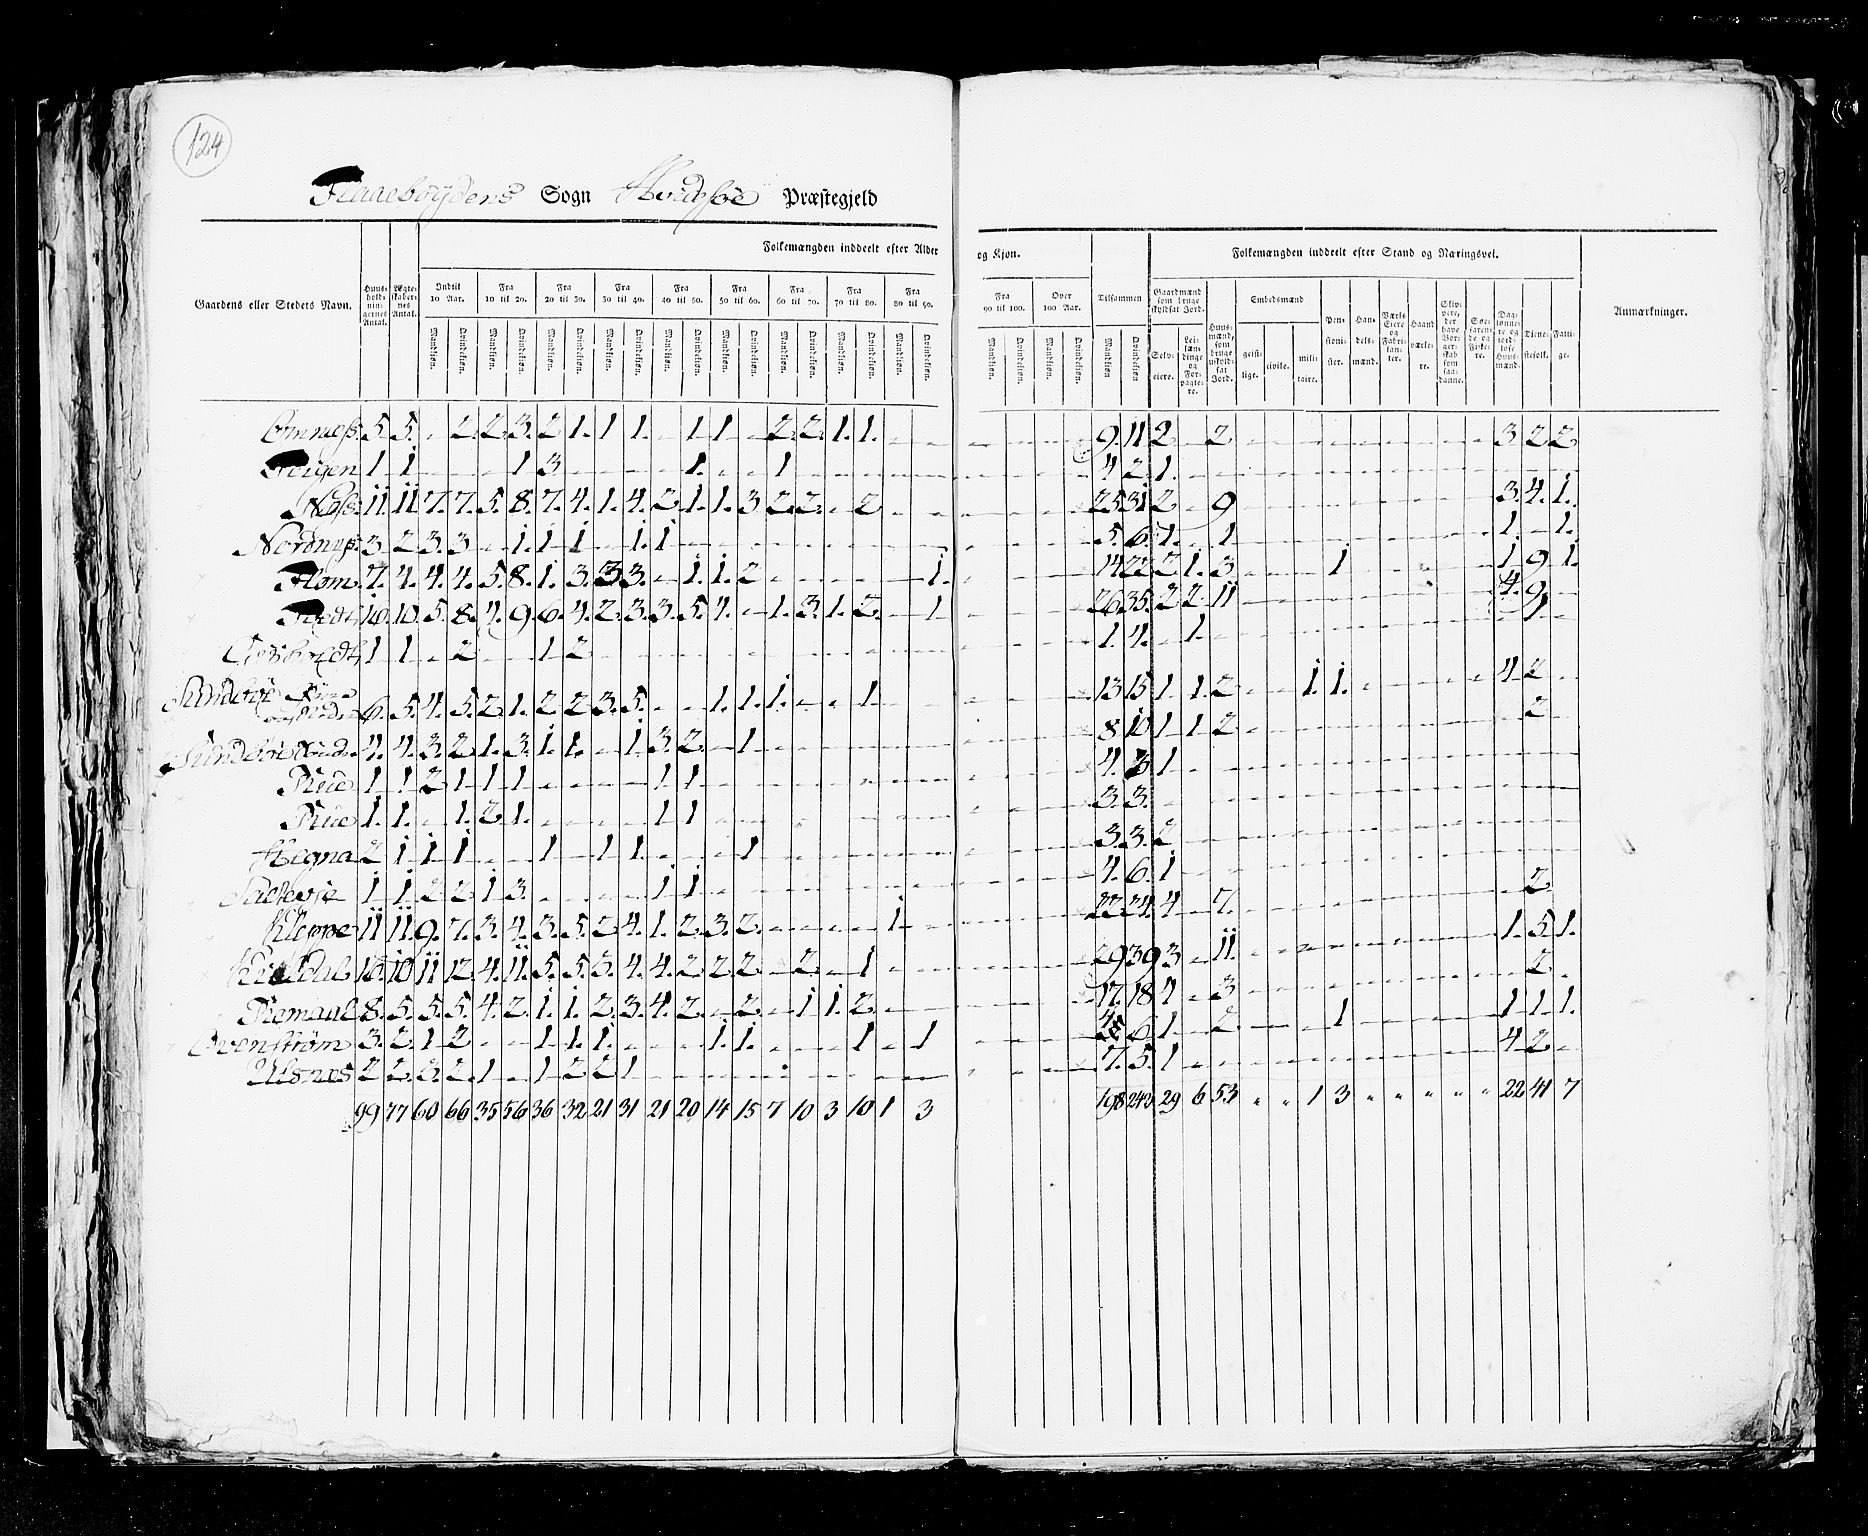 124
Flaaebøydens Sogn Hvidesøe Præstegjeld
Folkemængden inddeelt efter Alder og Kjøn. Folkemængden inddeelt efter Stand og Næringsvei.
Gaardens eller Stedets Navn. Huus-holdningernes Antal. Ægteskabernes Antal. Indtil 10 Aar. Fra 10 til 20. Fra 20 til 30. Fra 30 til 40. Fra 40 til 50. Fra 50 til 60. Fra 60 til 70. Fra 70 til 80. Fra 80 til 90. Fra 90 til 100. Over 100 Aar. Tilsammen Gaardmænd som bruge skyldsat Jord. Huusmænd, som bruge uskyldsat Jord. Embedsmænd Pensionister. Handelsmænd. Værks Eiere og Fabrikanter. Haandværkere. Skippere, der have Borgerskab som saadanne. Søefarende og Fiskere. Dagslønnere og jordløse Huusmænd. Tjenestefolk. Fattige. Anmærkninger.
Mandkjøn. Qvindekjøn. Selveiere. Leilændinge og Forpagtere. geistlige. civile. militaire.
Omnæss. 5. 5. - 2. 2. 3. 2. 1. 1 1. - 1 1. - 2. 2. 1. 1. - - 9. 11. 2 - 2 3 2 2
1 1 - - - 1 3 - - - - 1. - - 1 4 2 1.
Næss. 11 11 7. 7. 5. 8. 7. 4. 1. 4. 2 1. 1. 3 2. 2. - 2 - - 25 31 2 - 9 3. 4. 1.
3 2 3. 3 - 1. 1 1 - 1. 1 5. 6. 1. - 1 1. - 1.
Flom. 7. 4. 4. 4. 5. 8. 1. 3. 3 3. - 1. 1. 2 - - - - - 1. 14 22 2 1. 3 1 1. 9 1.
10. 10. 5. 8. 4. 9. 6. 4. 2. 3. 3. 5. 4. - 1. 3. 1. 2. - 1 26 35. 2 2. 11 4. 9.
1 1. - 2 - - 1 2 1. 4. - 1. 1
Sundbøe 6. 5. 4. 5. 2. 1. 2 2 3. 5. - - 1. 1. 1. - - 1. 13 15 1. 1. 2 1. 1. 4 2
Sundbøe 4. 4. 3. 2. 1. 3. 1. 1. - 1. 3. 2. - 1 8 10 1 1. 2 2
Rue 1. 1. 2. 1 1 1 - - - - 1 1 4. 3 1
Rue 1. 1. - 1. 2. 1. - - - - 1 1 3. 3.
Hegna 2 1 1 1 - - 1 - 1 1. - - - 1 3. 3. 2
1 1. 2 2 1 3. - - - - 1 1 4. 6. 1
Kleppe 11 11. 9. 7. 3. 4. 3. 5. 2 4. 1. 2 3. 2. - - - - 1 - 22 24. 4 - 7. 2
10. 10 11 12. 4. 11. 5. 5. 3. 4. 4. 2 2. 2 - 2. - 1 29 39 3 - 11. 1. 5. 1.
8. 5. 5. 5. 4. 2 1. 1. 2 3. 4. 2 - 2 - 1 1. 2 17. 18 4 - 3 2
3. 2. 1. 2 - - 1. 1. 1. - - - 1. 1. - - - 1 - 1 6. 1 - 2 1 1. 1. 1.
Ulsnes 2 2. 3. 2. 1. - 1. 2 2 1 7. 5. 1 4 2
99 77 60 66 35 56 36 32 21 31 21 20 14 15 7 10 3 10 1 3 198 243 29 6 53 " " 1 3 " " " " " 22 41 7